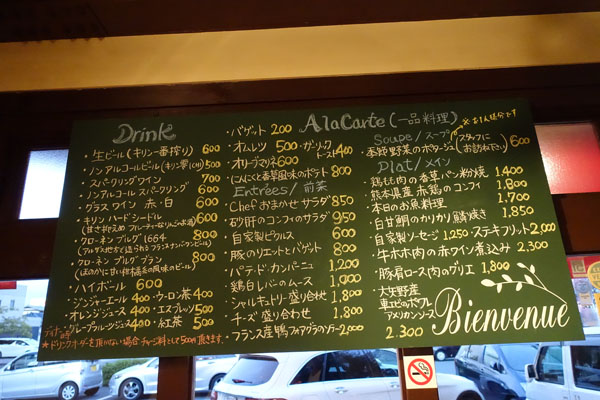 Drink
・生ビール(キリン一番搾り) 600
・ノンアルコールビール(キリン零ICHI) 500
・スパークリングワイン 700
・ノンアルコールスパークリング 600
・グラスワイン 赤・白 600
・キリン ハードシードル 600
・クローネンブルグ 1664 800
・クローネンブルグ ブラン 800
(ほのかに甘い柑橘系の風味のビール)
・ハイボール 600
・ジンジャーエール 400 ・ウーロン茶 400
・オレンジジュース 400 ・エスプレッソ 500
・グレープフルーツジュース 400 ・紅茶 500
★ドリンクオーダーを頂いない場合 チャージ料として500円頂きます。
A la Carte (一品料理)
・バゲット 200
・オムレツ 500 ・ガーリックトースト 400
・オリーブマリネ 600
・にんにくと香草風味のポテト 800
Entrées / 前菜
・Chefおまかせサラダ 850
・砂肝のコンフィのサラダ 950
・自家製ピクルス 600
・豚のリエットとバゲット 800
・パテ・ド・カンパーニュ 1,200
・鶏白レバーのムース 1,000
・シャルキュトリー盛り合せ 1,800
・チーズ盛り合わせ 1,800
・フランス産鴨フォアグラのソテー 2,000
Soupe / スープ
・季節野菜のポタージュ 600
(スタッフにお訪ね下さい)
Plat / メイン
・鶏もも肉の香草パン粉焼 1,400
・熊本県産 赤鶏のコンフィ 1,800
・本日のお魚料理 1,700
・白甘鯛のカリカリ鱗焼き 1,850
・自家製ソーセージ 1,250 ・ステキフリット 2,000
・牛ホホ肉の赤ワイン煮込み 2,300
・豚肩ロース肉のグリエ 1,800
・大矢野産
車エビのポワレ
アメリカンソース 2,300
Bienvenue